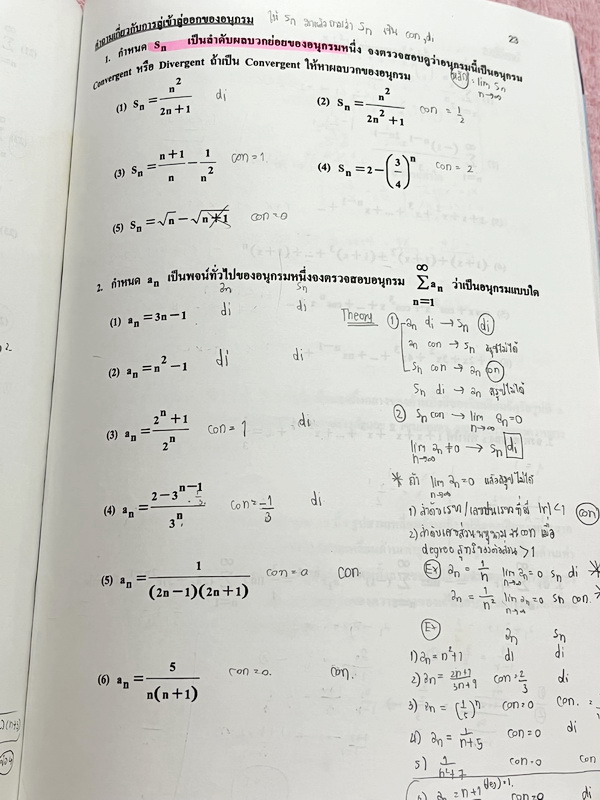 คำถามเกี่ยวกับการลู่เข้าลู่ออกของอนุกรม
23
1. กำหนด Sn เป็นลำดับผลบวกย่อยของอนุกรมหนึ่ง จงตรวจสอบดูว่าอนุกรมนี้เป็นอนุกรม
Convergent หรือ Divergent ถ้าเป็น Convergent ให้หาผลบวกของอนุกรม
lim Sn n→∞
(1) Sn = n²/(2n+1) di
(2) Sn = n²/(2n²+1) con = 1/2
(3) Sn = (n+1)/n − 1/n² con = 1.
(4) Sn = 2 − (3/4)ⁿ con = 2
(5) Sn = √n − √(n+1) con = 0
2. กำหนด an เป็นพจน์ทั่วไปของอนุกรมหนึ่งจงตรวจสอบอนุกรม ∞ Σ an n=1 ว่าเป็นอนุกรมแบบใด
an Sn
(1) an = 3n − 1 di di
(2) an = n² − 1 di di
(3) an = (2ⁿ + 1)/2ⁿ con = 1 di
(4) an = (2 − 3ⁿ⁻¹)/3ⁿ con = −1/3 di
(5) an = 1/((2n−1)(2n+1)) con = 0 con
(6) an = 5/(n(n+1)) con = 0. con.
Theory ① an di → Sn di
an con → Sn สรุปไม่ได้
Sn con → an con
Sn di → an สรุปไม่ได้
② Sn con → lim n→∞ an = 0
lim n→∞ an ≠ 0 → Sn di
* ถ้า lim n→∞ an = 0 แล้วสรุปไม่ได้
|r| < 1 con
degree > 1
Ex an = 1/n lim n→∞ an = 0 Sn di
an = 1/n² lim n→∞ an = 0 Sn con
Ex an Sn
1) an = n²+7 di di
2) an = (2n+7)/(3n+9) con = 2/3 di
3) an = (1/5)ⁿ con = 0 con.
4) an = 1/(n+5) con = 0 di
5) 1/(n²+7) con = 0 con